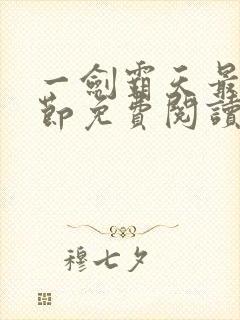 一劍霸天最
節免費閱讀
穆七夕